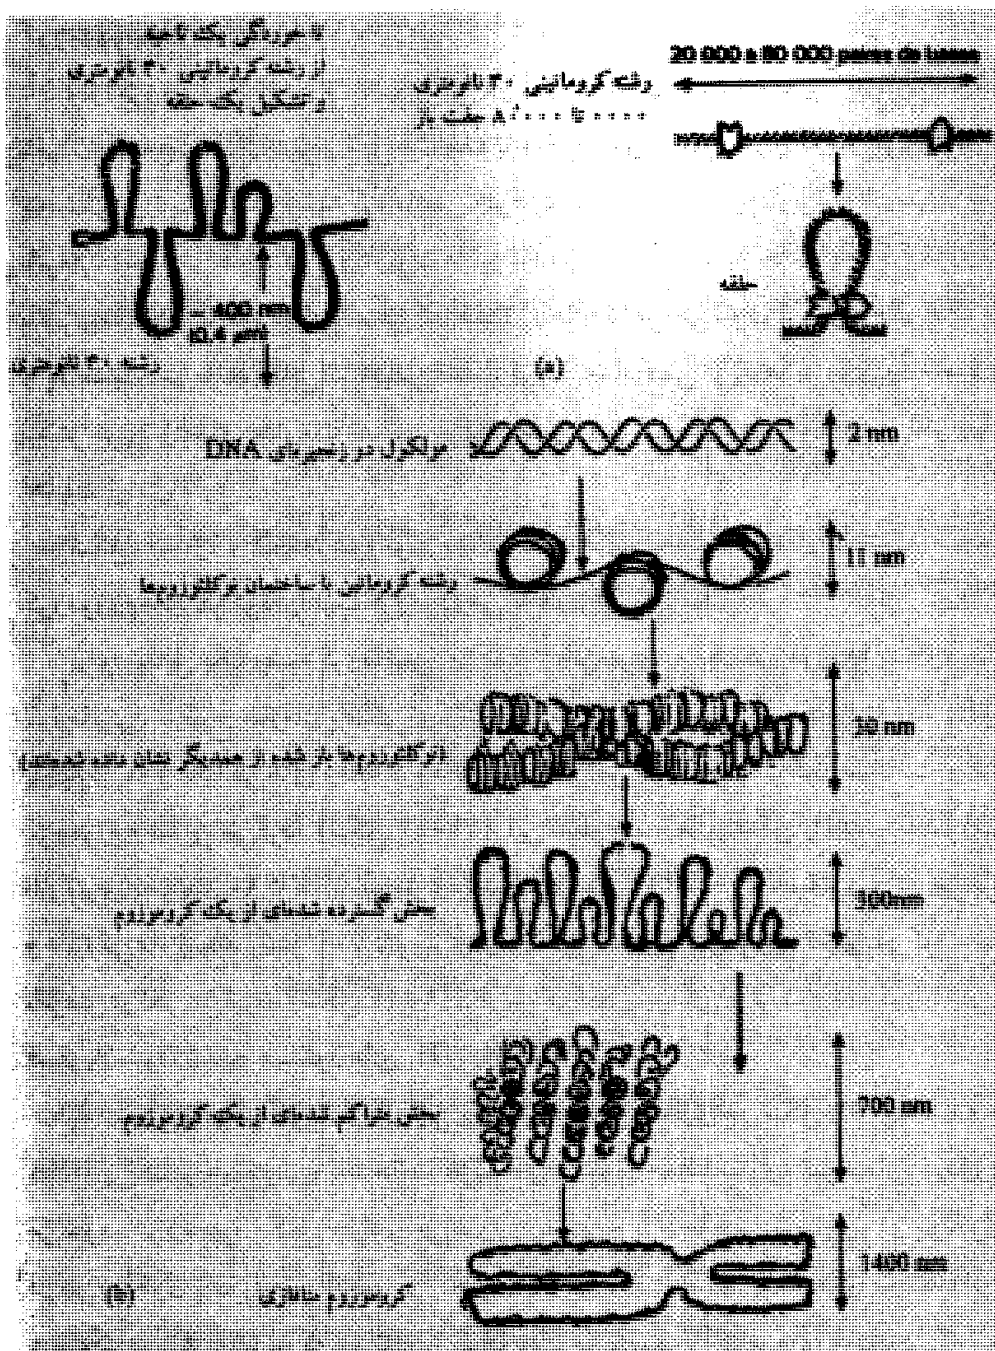 تا خوردگی یک ناحیه
از رشته کروماتینی ۳۰ نانومتری
و تشکیل یک حلقه
20 000 à 80 000 paires de bases
رشته کروماتینی ۳۰ نانومتری
تا ۸۰۰۰۰ جفت باز
~ 400 nm
(0.4 µm)
حلقه
رشته ۳۰ نانومتری
(a)
مولکول دو زنجیره‌ای DNA
2 nm
رشته کروماتین با ساختمان نوکلئوزوم‌ها
11 nm
(نوکلئوزوم‌ها باز شده از همدیگر نشان داده شده‌اند)
30 nm
بخش گسترده شده‌ای از یک کروموزوم
300nm
بخش متراکم شده‌ای از یک کروموزوم
700 nm
1400 nm
کروموزوم متافازی
(b)